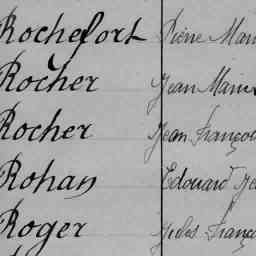 Rochefort Pierre Mari
Rocher Jean Marie
Rocher Jean Françoi
Rohan Edouard Je
Roger Jules Franço